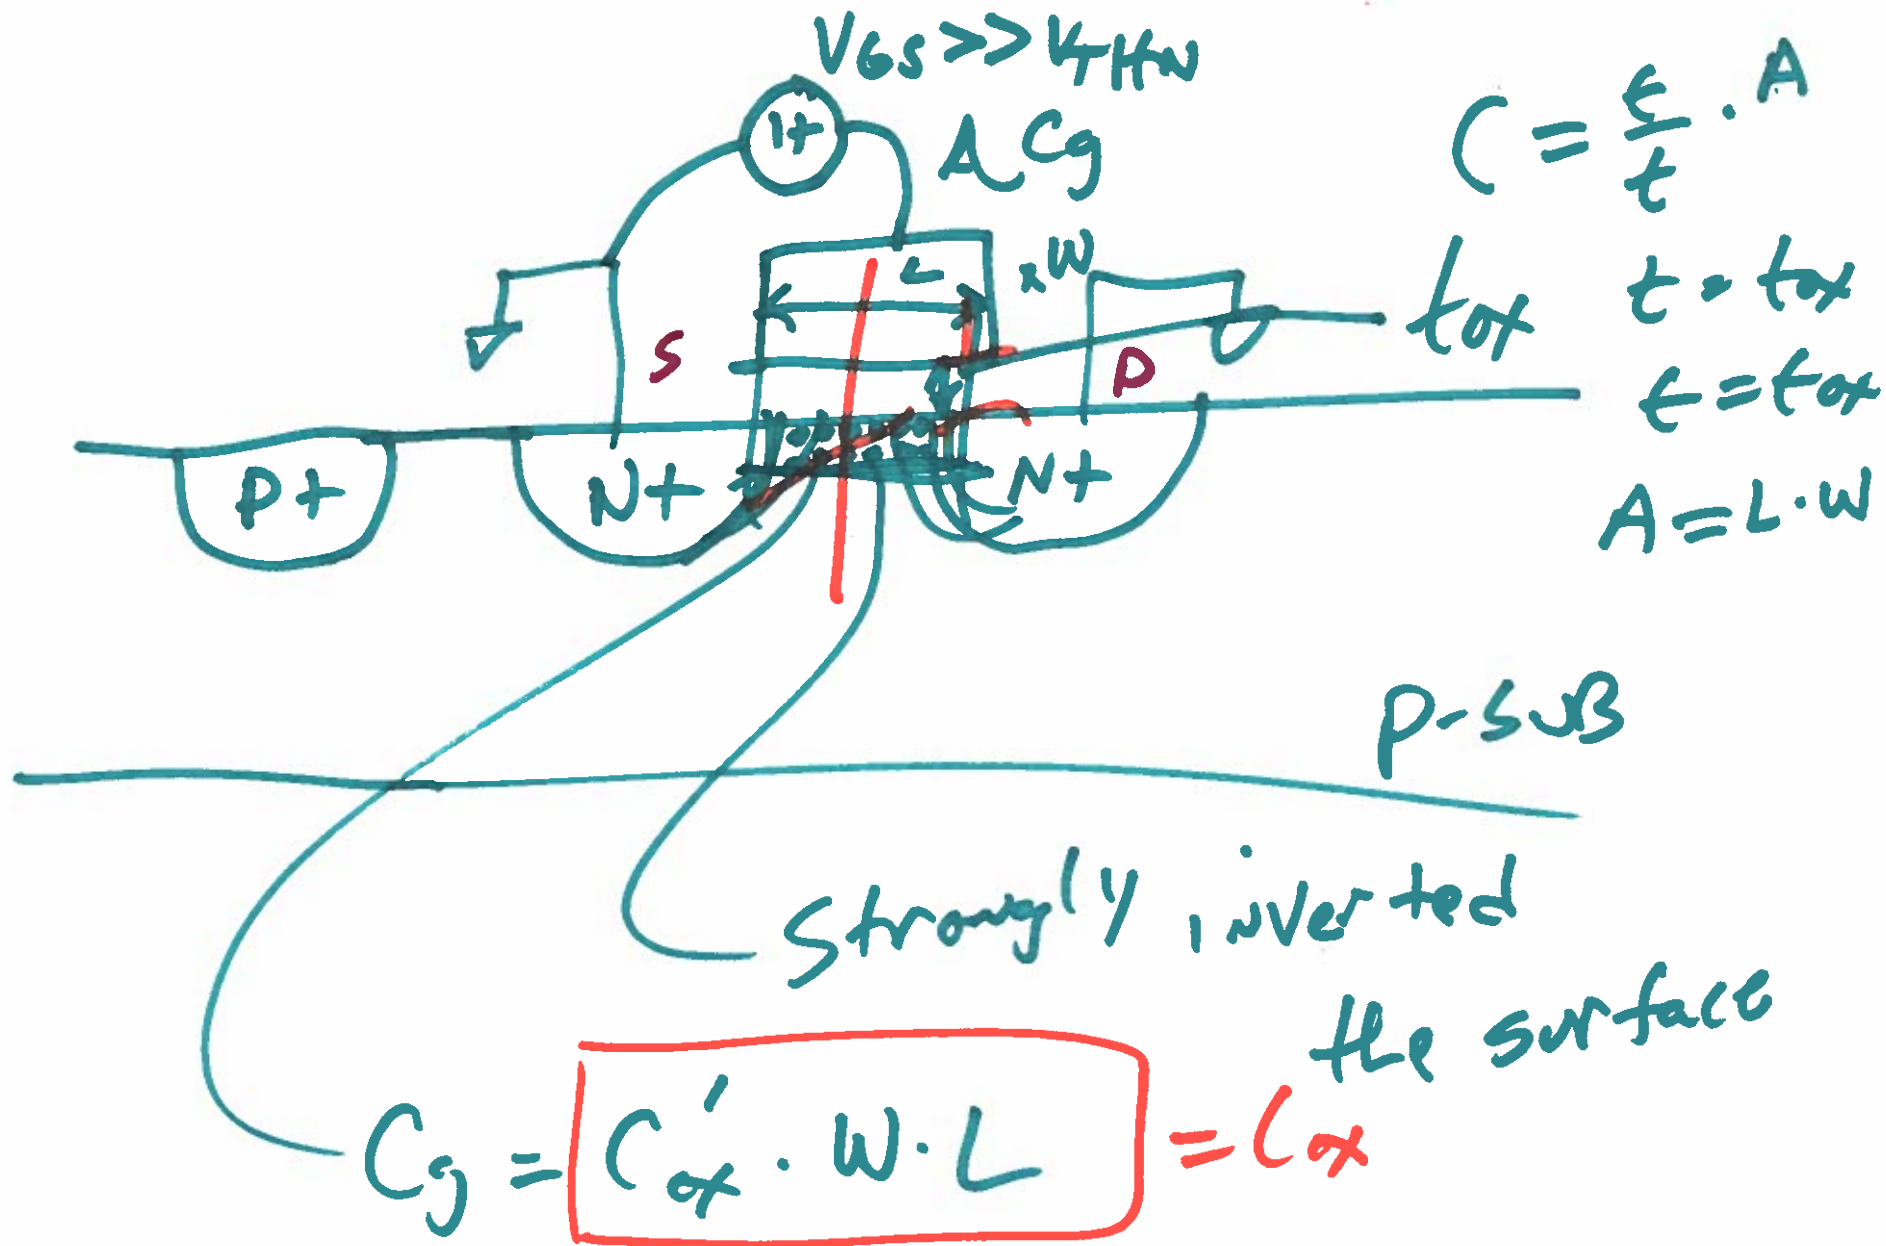 VGS >> VTHN
C = ε/t · A
1+
A Cg
L
xW
tox
t = tox
ε = εox
S
D
P+
N+
N+
A = L·W
P-SUB
Strongly inverted
the surface
Cg = C'ox · W · L = Cox